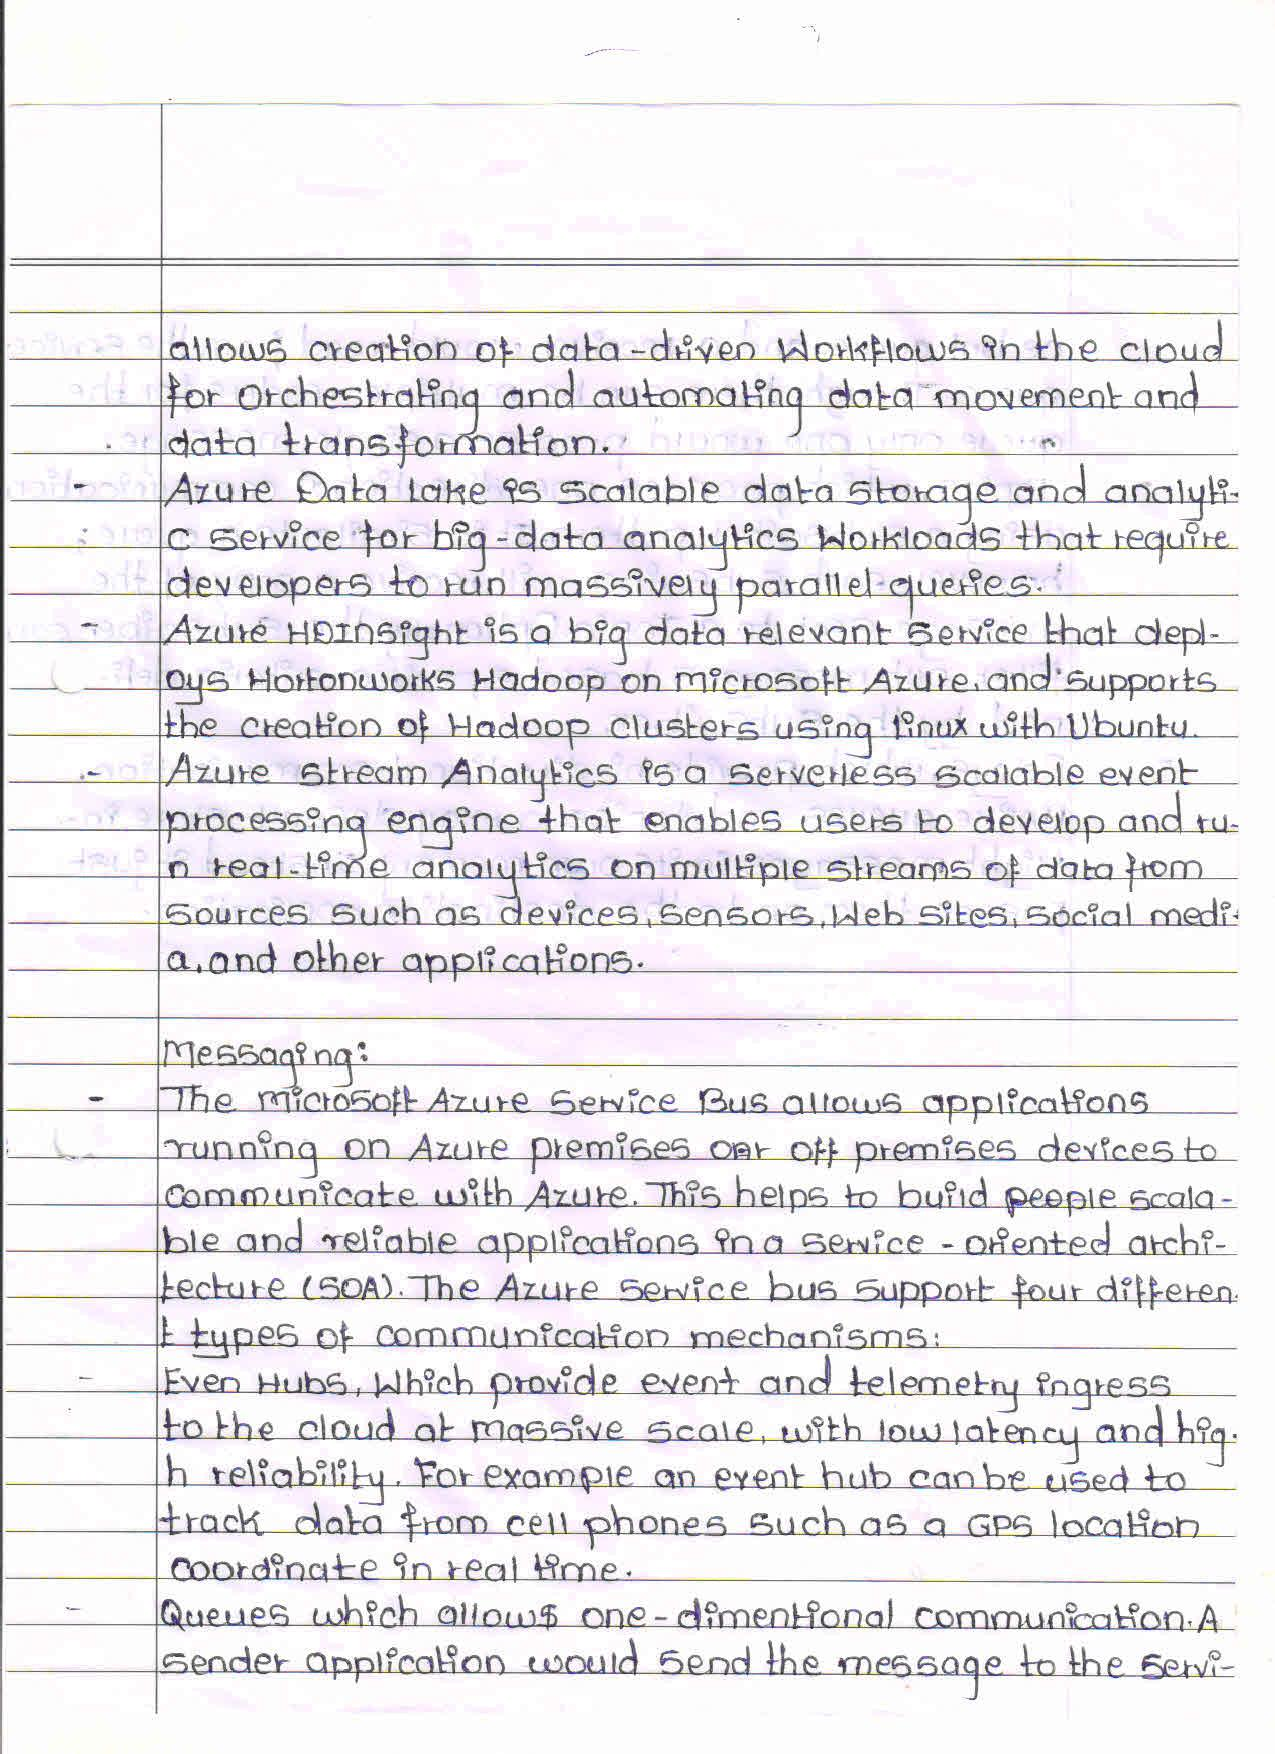 allows creation of data-driven Workflows in the cloud
for Orchestrating and automating data movement and
data transformation.
- Azure Data Lake is scalable data storage and analyti-
c service for big-data analytics Workloads that require
developers to run massively parallel queries.
- Azure HDInsight is a big data relevant service that depl-
oys Hortonworks Hadoop on microsoft Azure, and supports
the creation of Hadoop clusters using linux with Ubuntu.
- Azure stream Analytics is a serverless scalable event
processing engine that enables users to develop and ru-
n real-time analytics on multiple streams of data from
sources such as devices, sensors, Web sites, social medi-
a, and other applications.
Messaging:
- The microsoft Azure Service Bus allows applications
running on Azure premises or off premises devices to
communicate with Azure. This helps to build people scala-
ble and reliable applications in a service - oriented archi-
tecture (SOA). The Azure service bus support four differen
t types of communication mechanisms:
- Even Hubs, Which provide event and telemetry ingress
to the cloud at massive scale, with low latency and hig-
h reliability. For example an event hub can be used to
track data from cell phones such as a GPS location
coordinate in real time.
- Queues which allows one-dimentional communication. A
sender application would send the message to the servi-